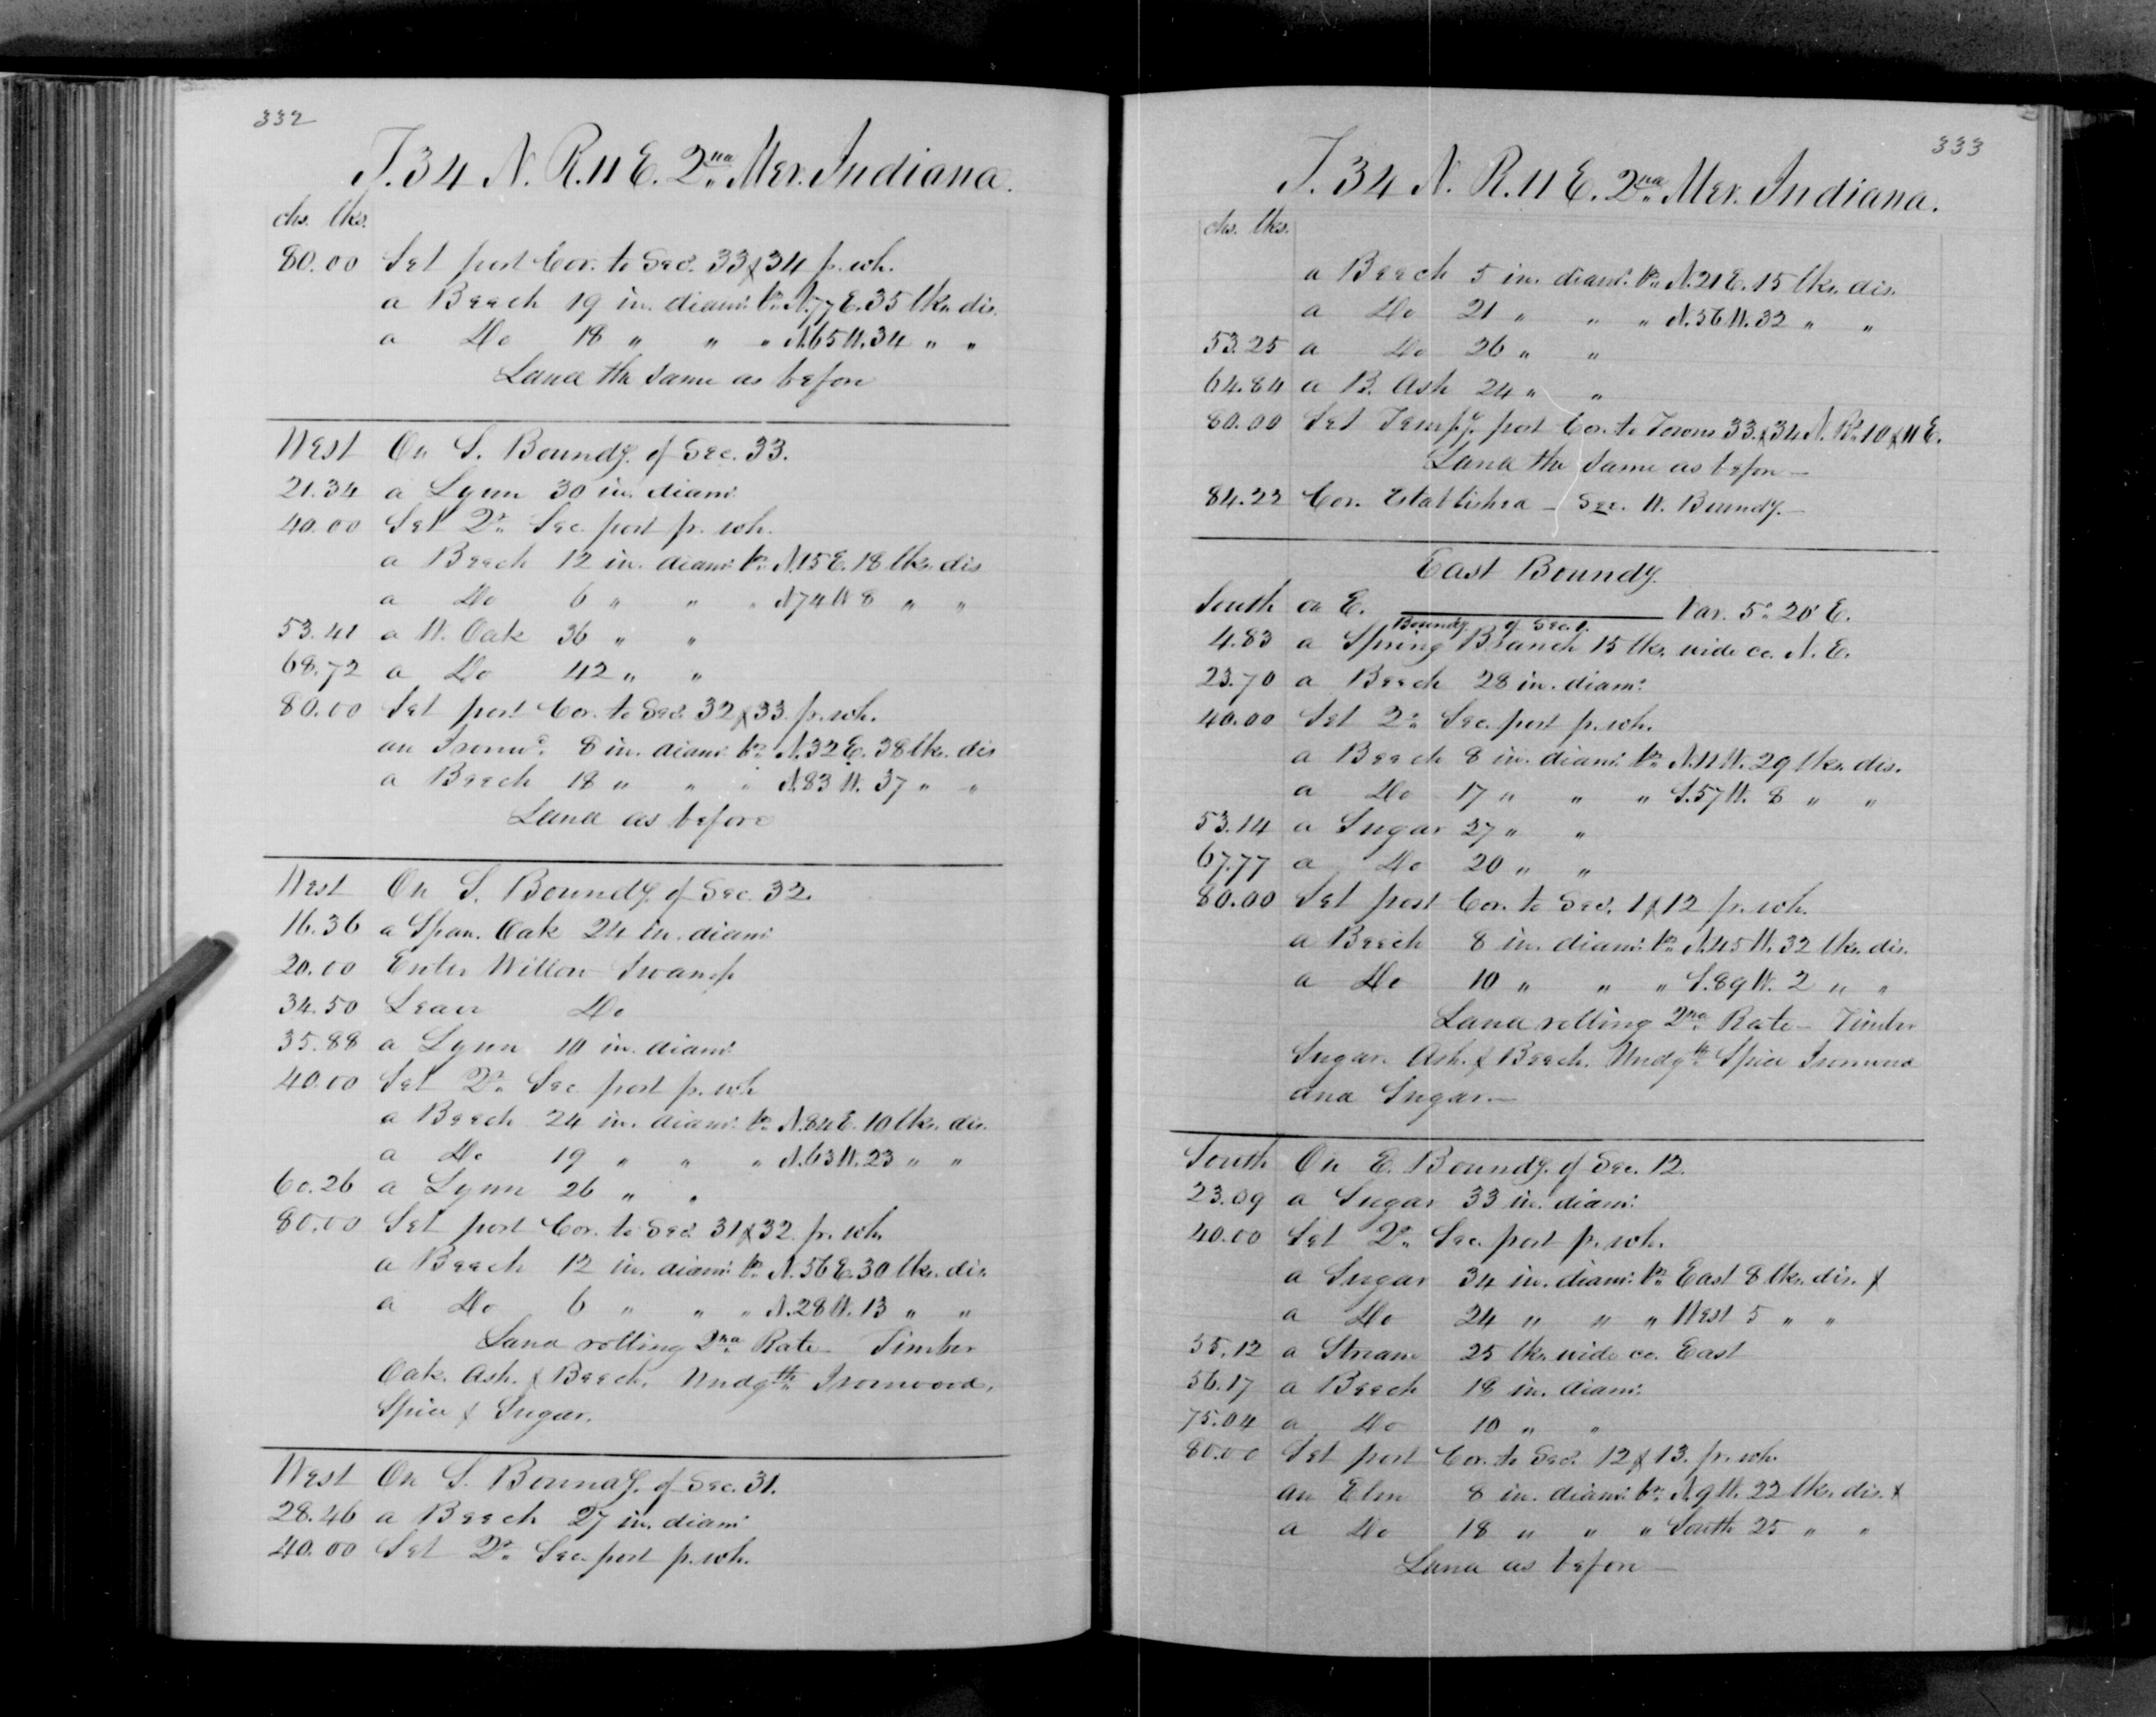 332
T. 34 N. R. 11 E. 2nd Mer. Indiana.
chs. lks.
80.00 Set post Cor. to Secs. 33 & 34 p. wh.
a Beech 19 in. diam: brs. N. 77 E. 35 lks. dis.
a Do 18 " " " N. 65 W. 34 " "
Land the same as before
West On S. Boundy. of Sec. 33.
21.34 a Lynn 30 in. diam:
40.00 Set Qr. Sec. post p. wh.
a Beech 12 in. diam: brs. N. 15 E. 18 lks. dis
a Do 6 " " " N 74 W 8 " "
53.41 a W. Oak 36 " "
68.72 a Do 42 " "
80.00 Set post Cor. to Secs. 32 & 33. p. wh.
an Ironwd. 8 in. diam: brs. N. 32 E. 38 lks. dis
a Beech 18 " " " N. 83 W. 37 " "
Land as before
West On S. Boundy. of Sec. 32.
16.36 a Span. Oak 24 in. diam:
20.00 Enter Willow Swamp
34.50 Leave Do
35.88 a Lynn 10 in. diam:
40.00 Set Qr. Sec. post p. wh
a Beech 24 in. diam: brs. N. 84 E. 10 lks. dis.
a Do 19 " " " N. 63 W. 23 " "
60.26 a Lynn 26 " "
80.00 Set post Cor. to Secs. 31 & 32. p. wh.
a Beech 12 in. diam: brs. N. 56 E. 30 lks. dis.
a Do 6 " " " N. 28 W. 13 " "
Land rolling 2nd Rate – Timber
Oak. Ash. & Beech. Undgth. Ironwood.
Spice & Sugar.
West On S. Boundy. of Sec. 31.
28.46 a Beech 27 in. diam:
40.00 Set Qr. Sec. post p. wh.
333
T. 34 N. R. 11 E. 2nd Mer. Indiana.
chs. lks.
a Beech 5 in. diam: brs. N. 21 E. 15 lks. dis.
a Do 21 " " " N. 56 W. 32 " "
53.25 a Do 26 " "
64.84 a B. Ash 24 " "
80.00 Set Tempy. post Cor. to Towns 33. & 34 N. Rs. 10 & 11 E.
Land the same as before –
84.22 Cor. Established – See. W. Boundy. –
East Boundy.
South on E. Boundy. of Sec. 1. Var. 5° 20' E.
4.83 a Spring Branch 15 lks. wide co. N. E.
23.70 a Beech 28 in. diam:
40.00 Set Qr. Sec. post p. wh.
a Beech 8 in. diam: brs. N. 11 W. 29 lks. dis.
a Do 17 " " " S. 57 W. 8 " "
53.14 a Sugar 27 " "
67.77 a Do 20 " "
80.00 Set post Cor. to Secs. 1 & 12 p. wh.
a Beech 8 in. diam: brs. N. 45 W. 32 lks. dis.
a Do 10 " " " S. 89 W. 2 " "
Land rolling 2nd Rate – Timber
Sugar. Ash. & Beech. Undgth. Spice Ironwood
and Sugar. –
South On E. Boundy. of Sec. 12.
23.09 a Sugar 33 in. diam:
40.00 Set Qr. Sec. post p. wh.
a Sugar 34 in. diam: brs. East 8 lks. dis. &
a Do 24 " " " West 5 " "
55.12 a Stream 25 lks. wide co. East
56.17 a Beech 18 in. diam:
75.04 a Do 10 " "
80.00 Set post Cor. to Secs. 12 & 13. p. wh.
an Elm 8 in. diam: brs. N. 9 W. 22 lks. dis. &
a Do 18 " " " South 25 " "
Land as before –